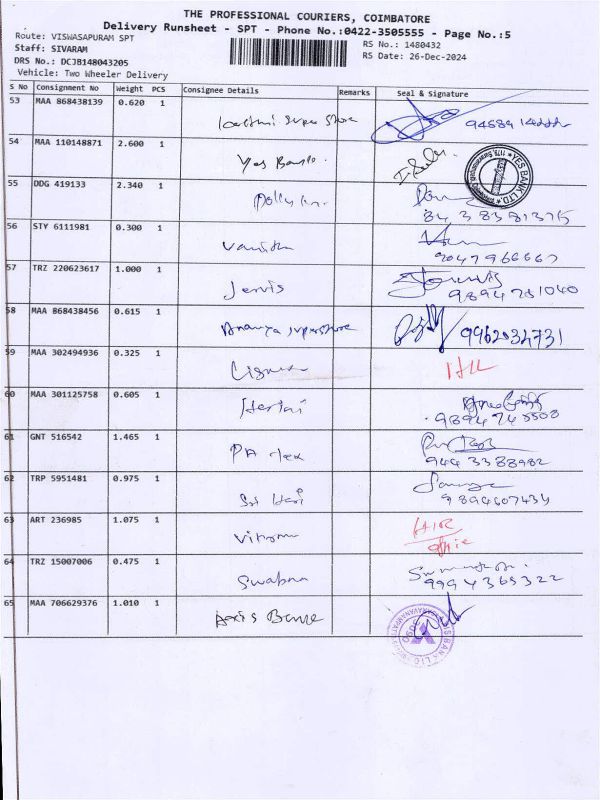 THE PROFESSIONAL COURIERS, COIMBATORE
Delivery Runsheet - SPT - Phone No.:0422-3505555 - Page No.:5
Route: VISWASAPURAM SPT
RS No.: 1480432
Staff: SIVARAM
RS Date: 26-Dec-2024
DRS No.: DCJB148043205
Vehicle: Two Wheeler Delivery
S No Consignment No Weight PCS Consignee Details Remarks Seal & Signature
53 MAA 868438139 0.620 1
54 MAA 110148871 2.600 1
Yes Bank
YES BANK LTD.
55 DDG 419133 2.340 1
8438381375
56 STY 6111981 0.300 1
Vanitha
9047966667
57 TRZ 220623617 1.000 1
Jervis
9894781040
58 MAA 868438456 0.615 1
Ananya superstore
9962034731
59 MAA 302494936 0.325 1
60 MAA 301125758 0.605 1
9894745508
61 GNT 516542 1.465 1
9443388982
62 TRP 5951481 0.975 1
Sri Hari
9894607434
63 ART 236985 1.075 1
64 TRZ 15007006 0.475 1
Swabna
9994365322
65 MAA 706629376 1.010 1
Axis Bank